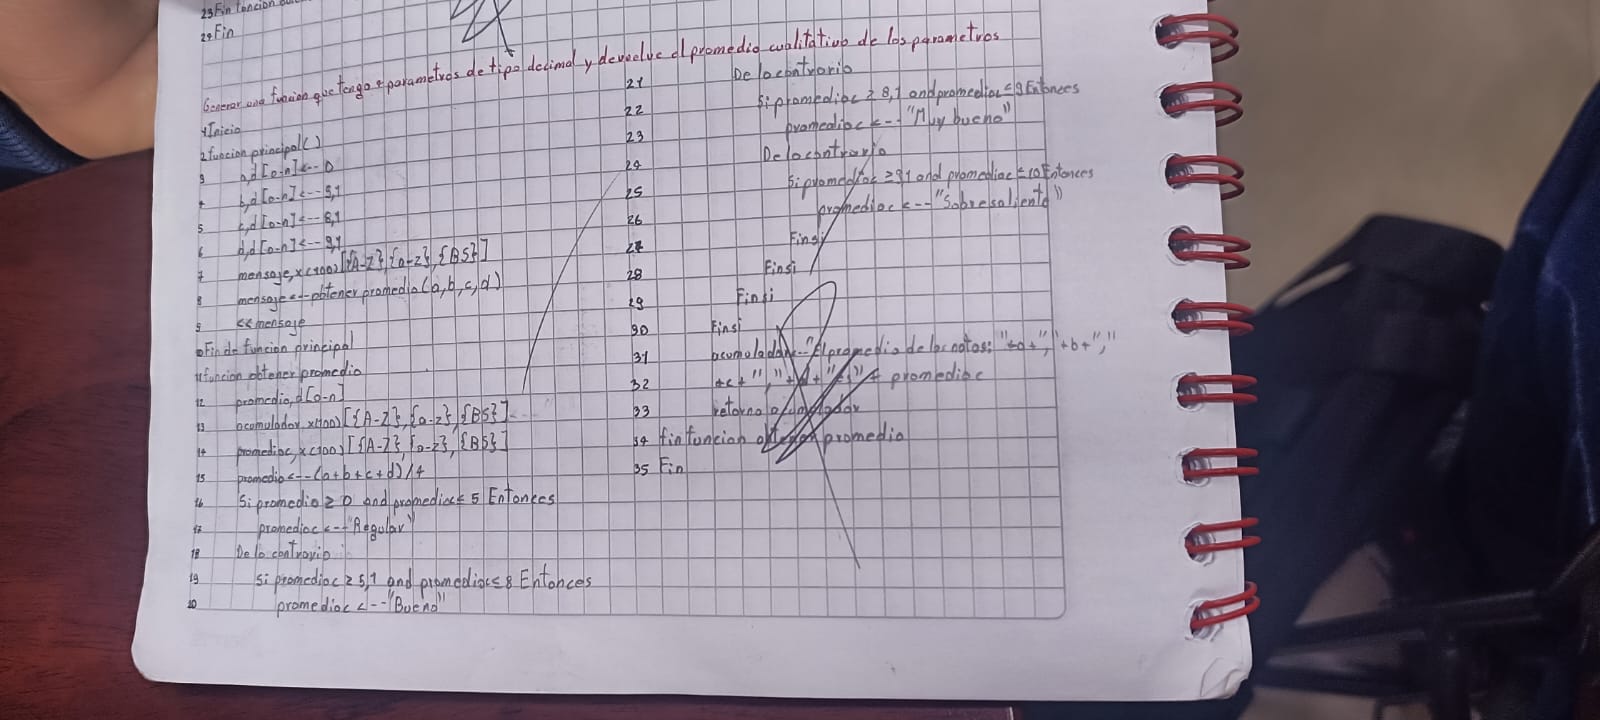 23 Fin funcion
24 Fin
Generar una funcion que tenga 4 parametros de tipo decimal y devuelve el promedio cualitativo de los parametros
1 Inicio
2 funcion principal()
3 a,d[0-n]<--0
4 b,d[0-n]<--5,1
5 c,d[0-n]<--8,1
6 d,d[0-n]<--9,1
7 mensaje,x(100)[{A-Z},{a-z},{BS}]
8 mensaje<--obtener promedio(a,b,c,d)
9 <<mensaje
10 Fin de funcion principal
11 funcion obtener promedio
12 promedio,d[0-n]
13 acumulador,x(100)[{A-Z},{a-z},{BS}]
14 promedioc,x(100)[{A-Z},{a-z},{BS}]
15 promedio<--(a+b+c+d)/4
16 Si promedio ≥ 0 and promedio≤ 5 Entonces
17 promedioc <--"Regular"
18 De lo contrario
19 Si promedioc ≥ 5,1 and promedioc≤8 Entonces
20 promedioc <--"Bueno"
21 De lo contrario
22 Si promedioc ≥ 8,1 and promedioc ≤9 Entonces
23 promedioc <--"Muy bueno"
24 De lo contrario
25 Si promedioc ≥9,1 and promedioc ≤10 Entonces
26 promedioc <--"Sobresaliente"
27 Finsi
28 Finsi
29 Finsi
30 Finsi
31 acumulador<--"El promedio de las notas: "+a+","+b+","
32 +c+","+d+"es"+ promedioc
33 retorno acumulador
34 fin funcion obtener promedio
35 Fin